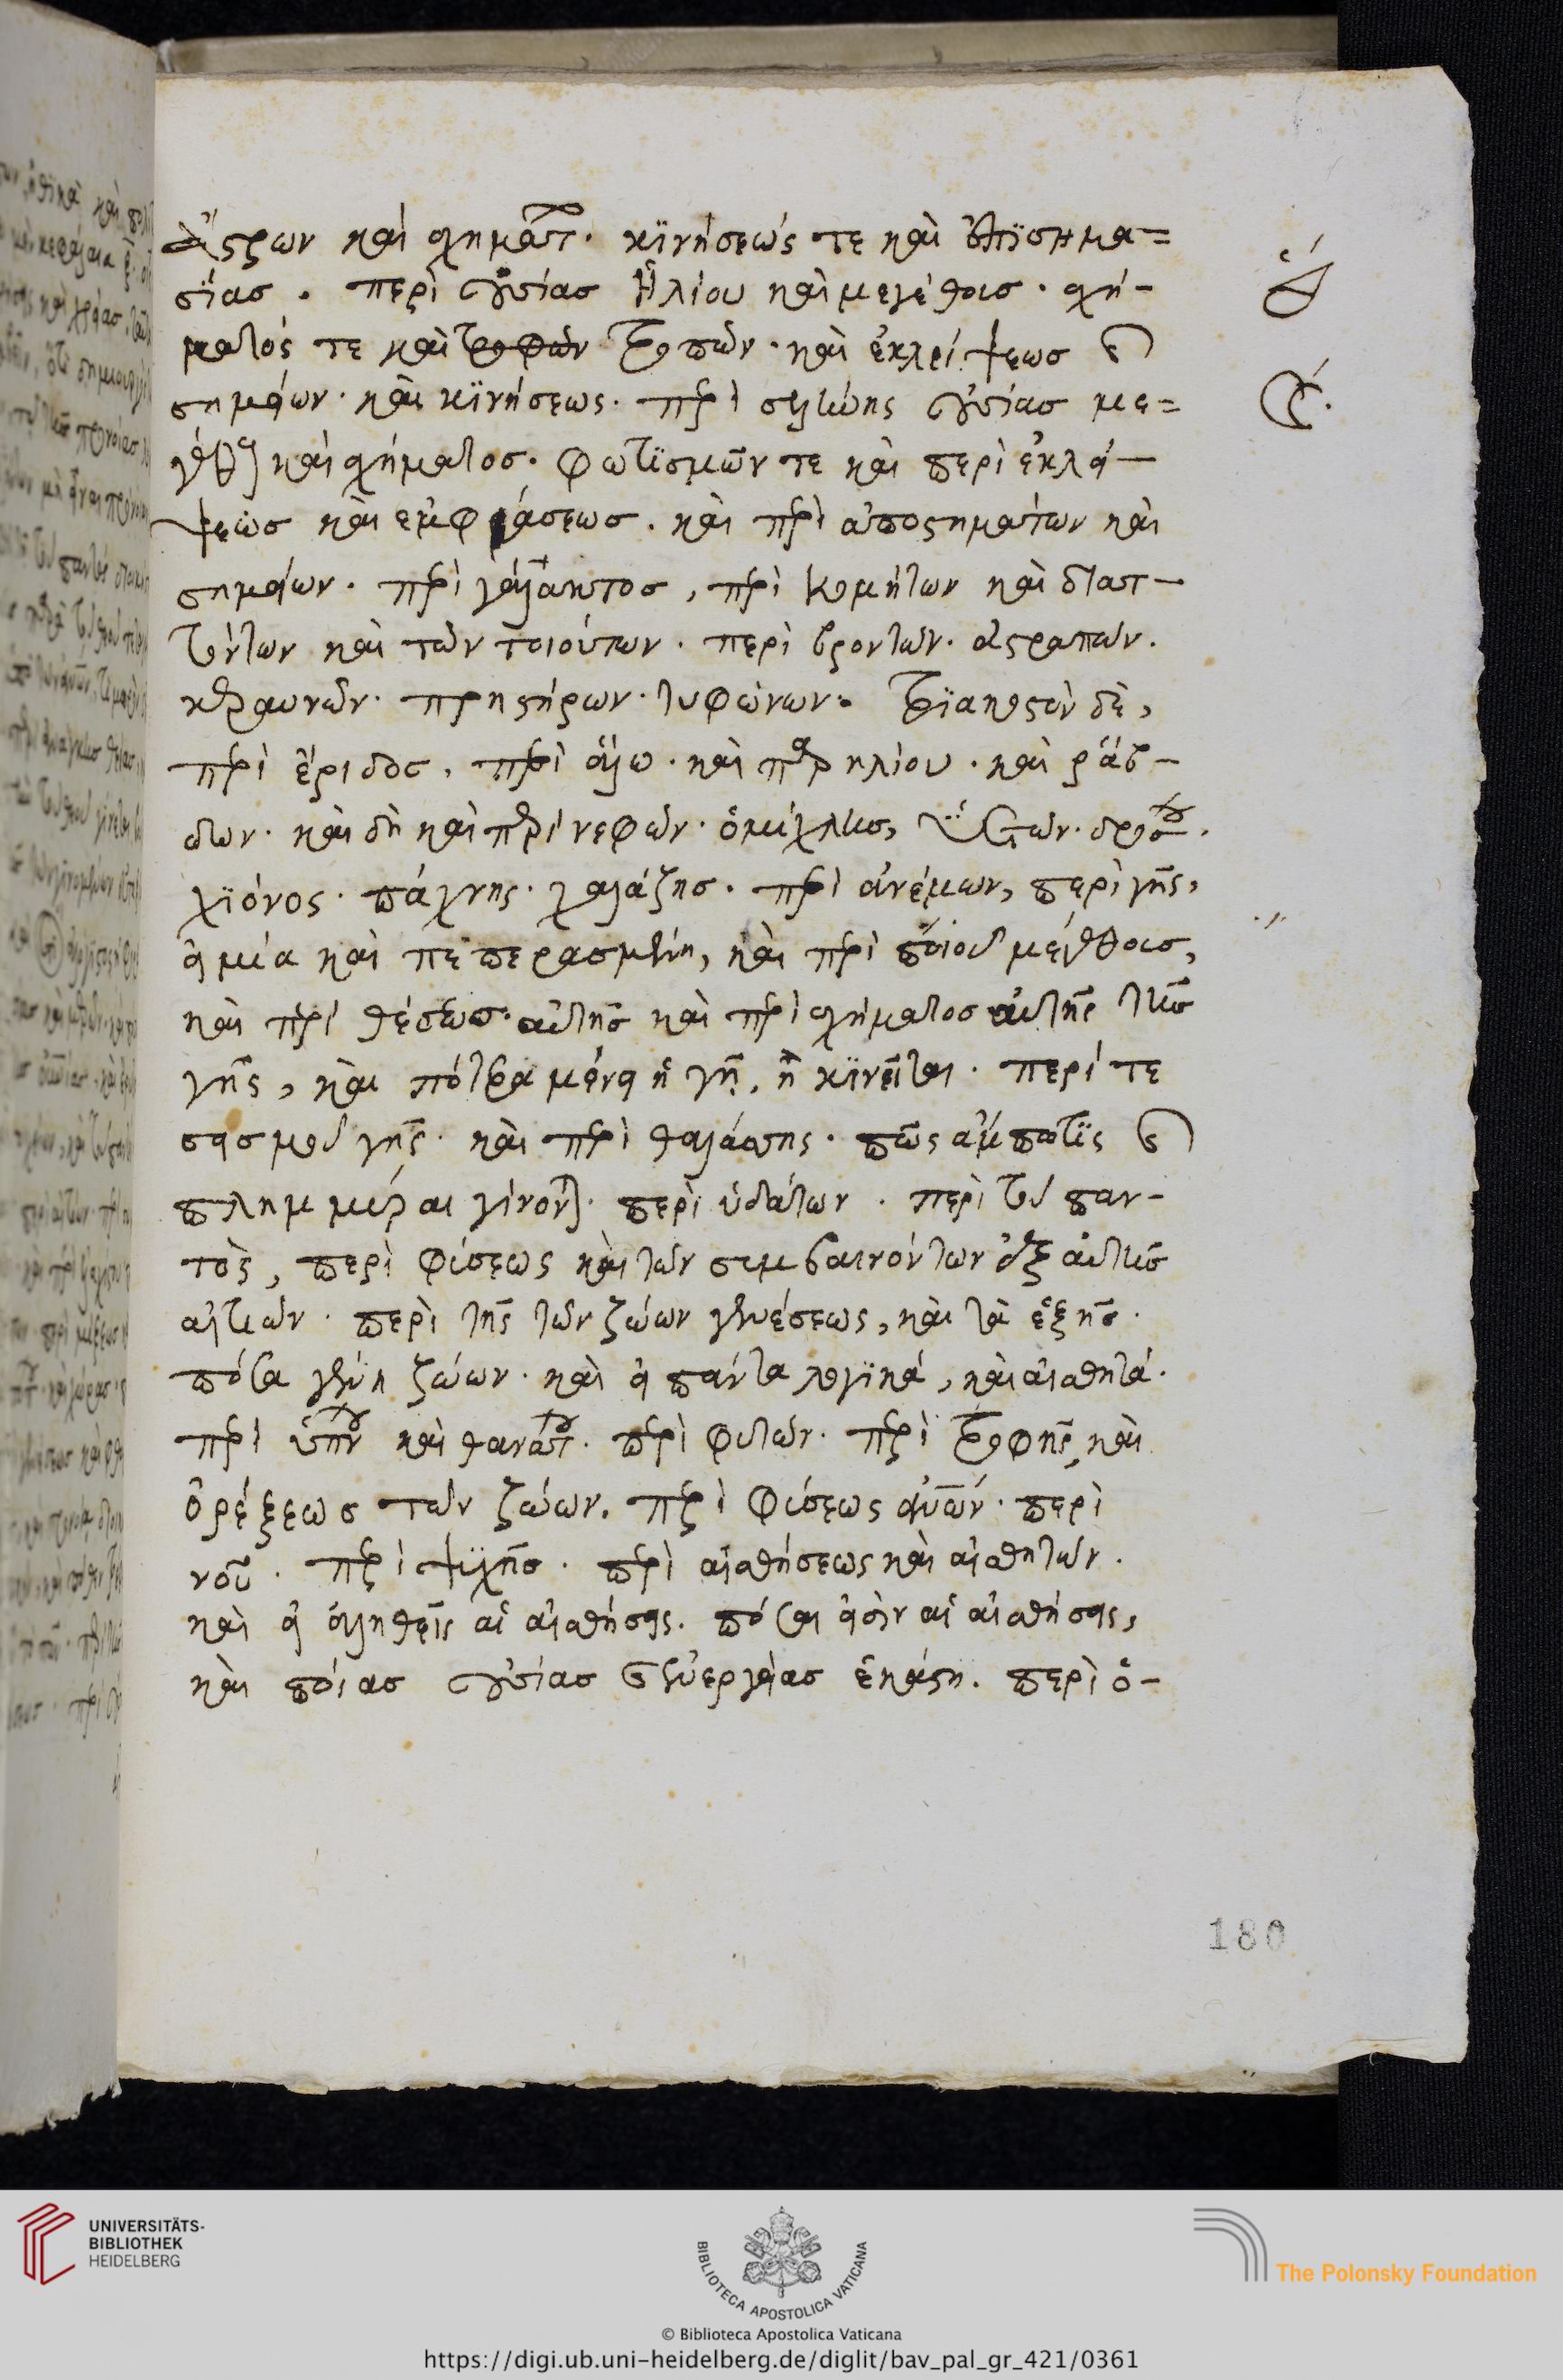 ἄστρων καὶ σχημάτων. κϊνήσεώς τε καὶ ἐπϊσημα=
σΐας. περὶ οὐσίας ἡλίου καὶ μεγέθους. σχή-
ματός τε καὶ τροφῶν τροπῶν. καὶ ἐκλείψεως καὶ
σημείων. καὶ κϊνήσεως. περὶ σελήνης οὐσίας με=
γέθους καὶ σχήματος. φωτϊσμῶν τε καὶ περὶ ἐκλεί-
ψεως καὶ ἐμφάσεως. καὶ περὶ ἀποστημάτων καὶ
σημείων. περὶ γάλακτος, περὶ κομήτων καὶ διατ-
τόντων καὶ τῶν τοιούτων. περὶ βροντῶν. ἀστραπῶν.
κεραυνῶν. πρηστήρων. τυφώνων. δὲ,
περὶ ἴριδος. περὶ ἅλω. καὶ παρηλίου. καὶ ῥάβ-
δων. καὶ δὴ καὶ περὶ νεφῶν. ὁμίχλης, ὑετῶν. δρόσου.
χϊόνος. πάχνης. χαλάζης. περὶ ἀνέμων, περὶ γῆς,
εἰ μία καὶ πεπερασμένη, καὶ περὶ ποίου μεγέθους,
καὶ περὶ θέσεως αὐτῆς καὶ περὶ σχήματος αὐτῆς τῆς
γῆς, καὶ πότερα μένει ἡ γῆ, ἢ κϊνεῖται. περί τε
σεισμοῦ γῆς. καὶ περὶ θαλάσσης. πῶς ἀμπώτϊς καὶ
πλημμύραι γίνονται. περὶ ὑδάτων. περὶ τοῦ παν-
τὸς, περὶ φύσεως καὶ τῶν συμβαινόντων ἐξ αὐτῆς
αἰτιῶν. περὶ τῆς τῶν ζώων γενέσεως, καὶ τὰ ἑξῆς.
πόσα γένη ζώων. καὶ εἰ πάντα λογϊκά, καὶ αἰσθητά.
περὶ ὕπνου καὶ θανάτου. περὶ φυτῶν. περὶ τροφῆς, καὶ
ὀρέξεως τῶν ζώων. περὶ φύσεως αὐτῶν. περὶ
νοῦ. περὶ ψϋχῆς. περὶ αἰσθήσεως καὶ αἰσθητῶν.
καὶ εἰ ἀληθεῖς αἱ αἰσθήσεις. πόσαι εἰσὶν αἱ αἰσθήσεις,
καὶ ποίας οὐσίας καὶ ἐνεργείας ἑκάστη. περὶ ὁ-
180
UNIVERSITÄTS-
BIBLIOTHEK
HEIDELBERG
BIBLIOTECA APOSTOLICA VATICANA
The Polonsky Foundation
© Biblioteca Apostolica Vaticana
https://digi.ub.uni-heidelberg.de/diglit/bav_pal_gr_421/0361